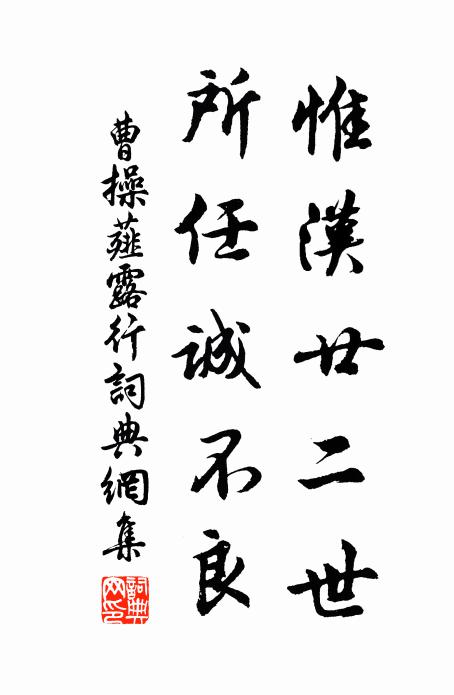 惟漢廿二世
所任誠不良
曹操薤露行詞典網集
詞典網印